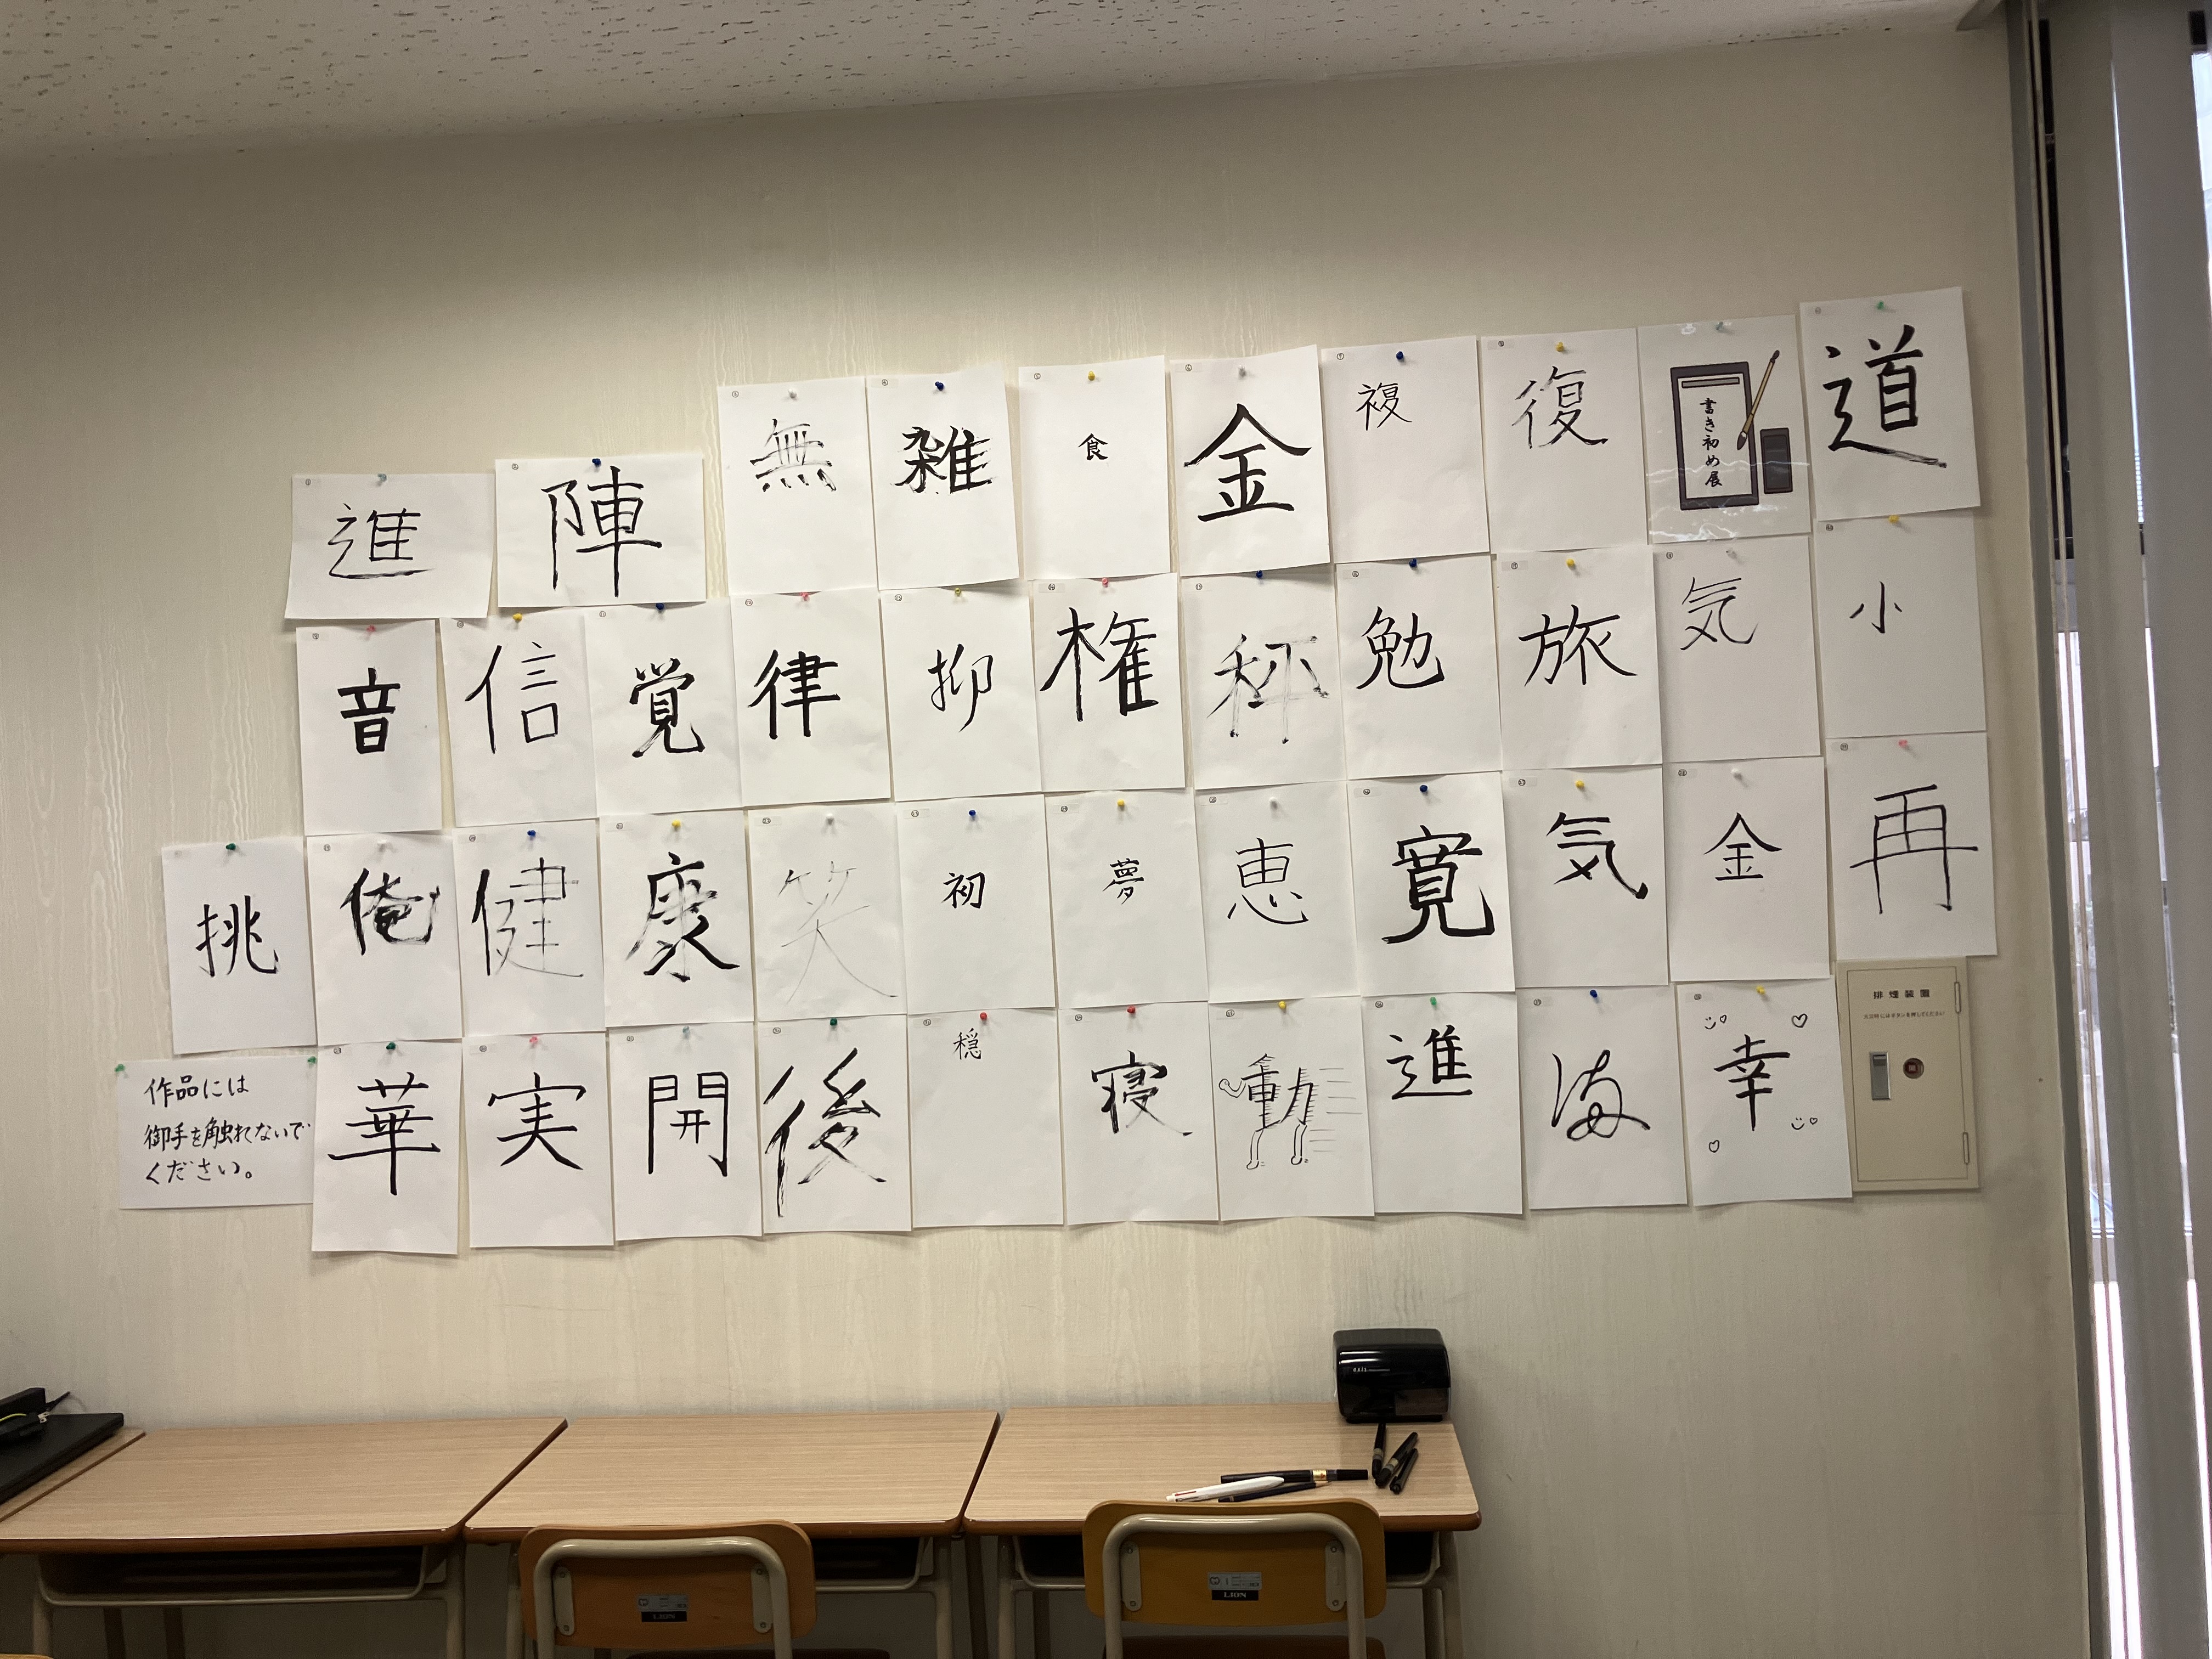 進
陣
無
雑
食
金
複
復
書き初め展
道
音
信
覚
律
抑
権
勉
旅
気
小
挑
俺
健
康
笑
初
夢
恵
寛
気
金
再
作品には
御手を触れないで
ください。
華
実
開
後
穏
寝
動
進
幸
排煙装置
LION
LION